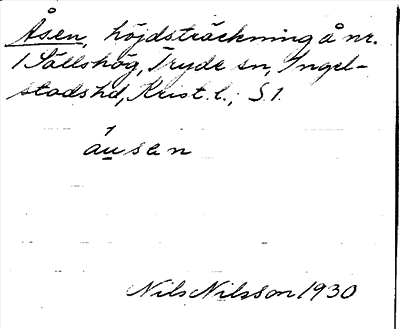 Åsen, höjdsträckning å nr.
1 Sällshög, Tryde sn, Ingel-
stads hd, Krist. l.; S.1.
áu̯sen
Nils Nilsson 1930